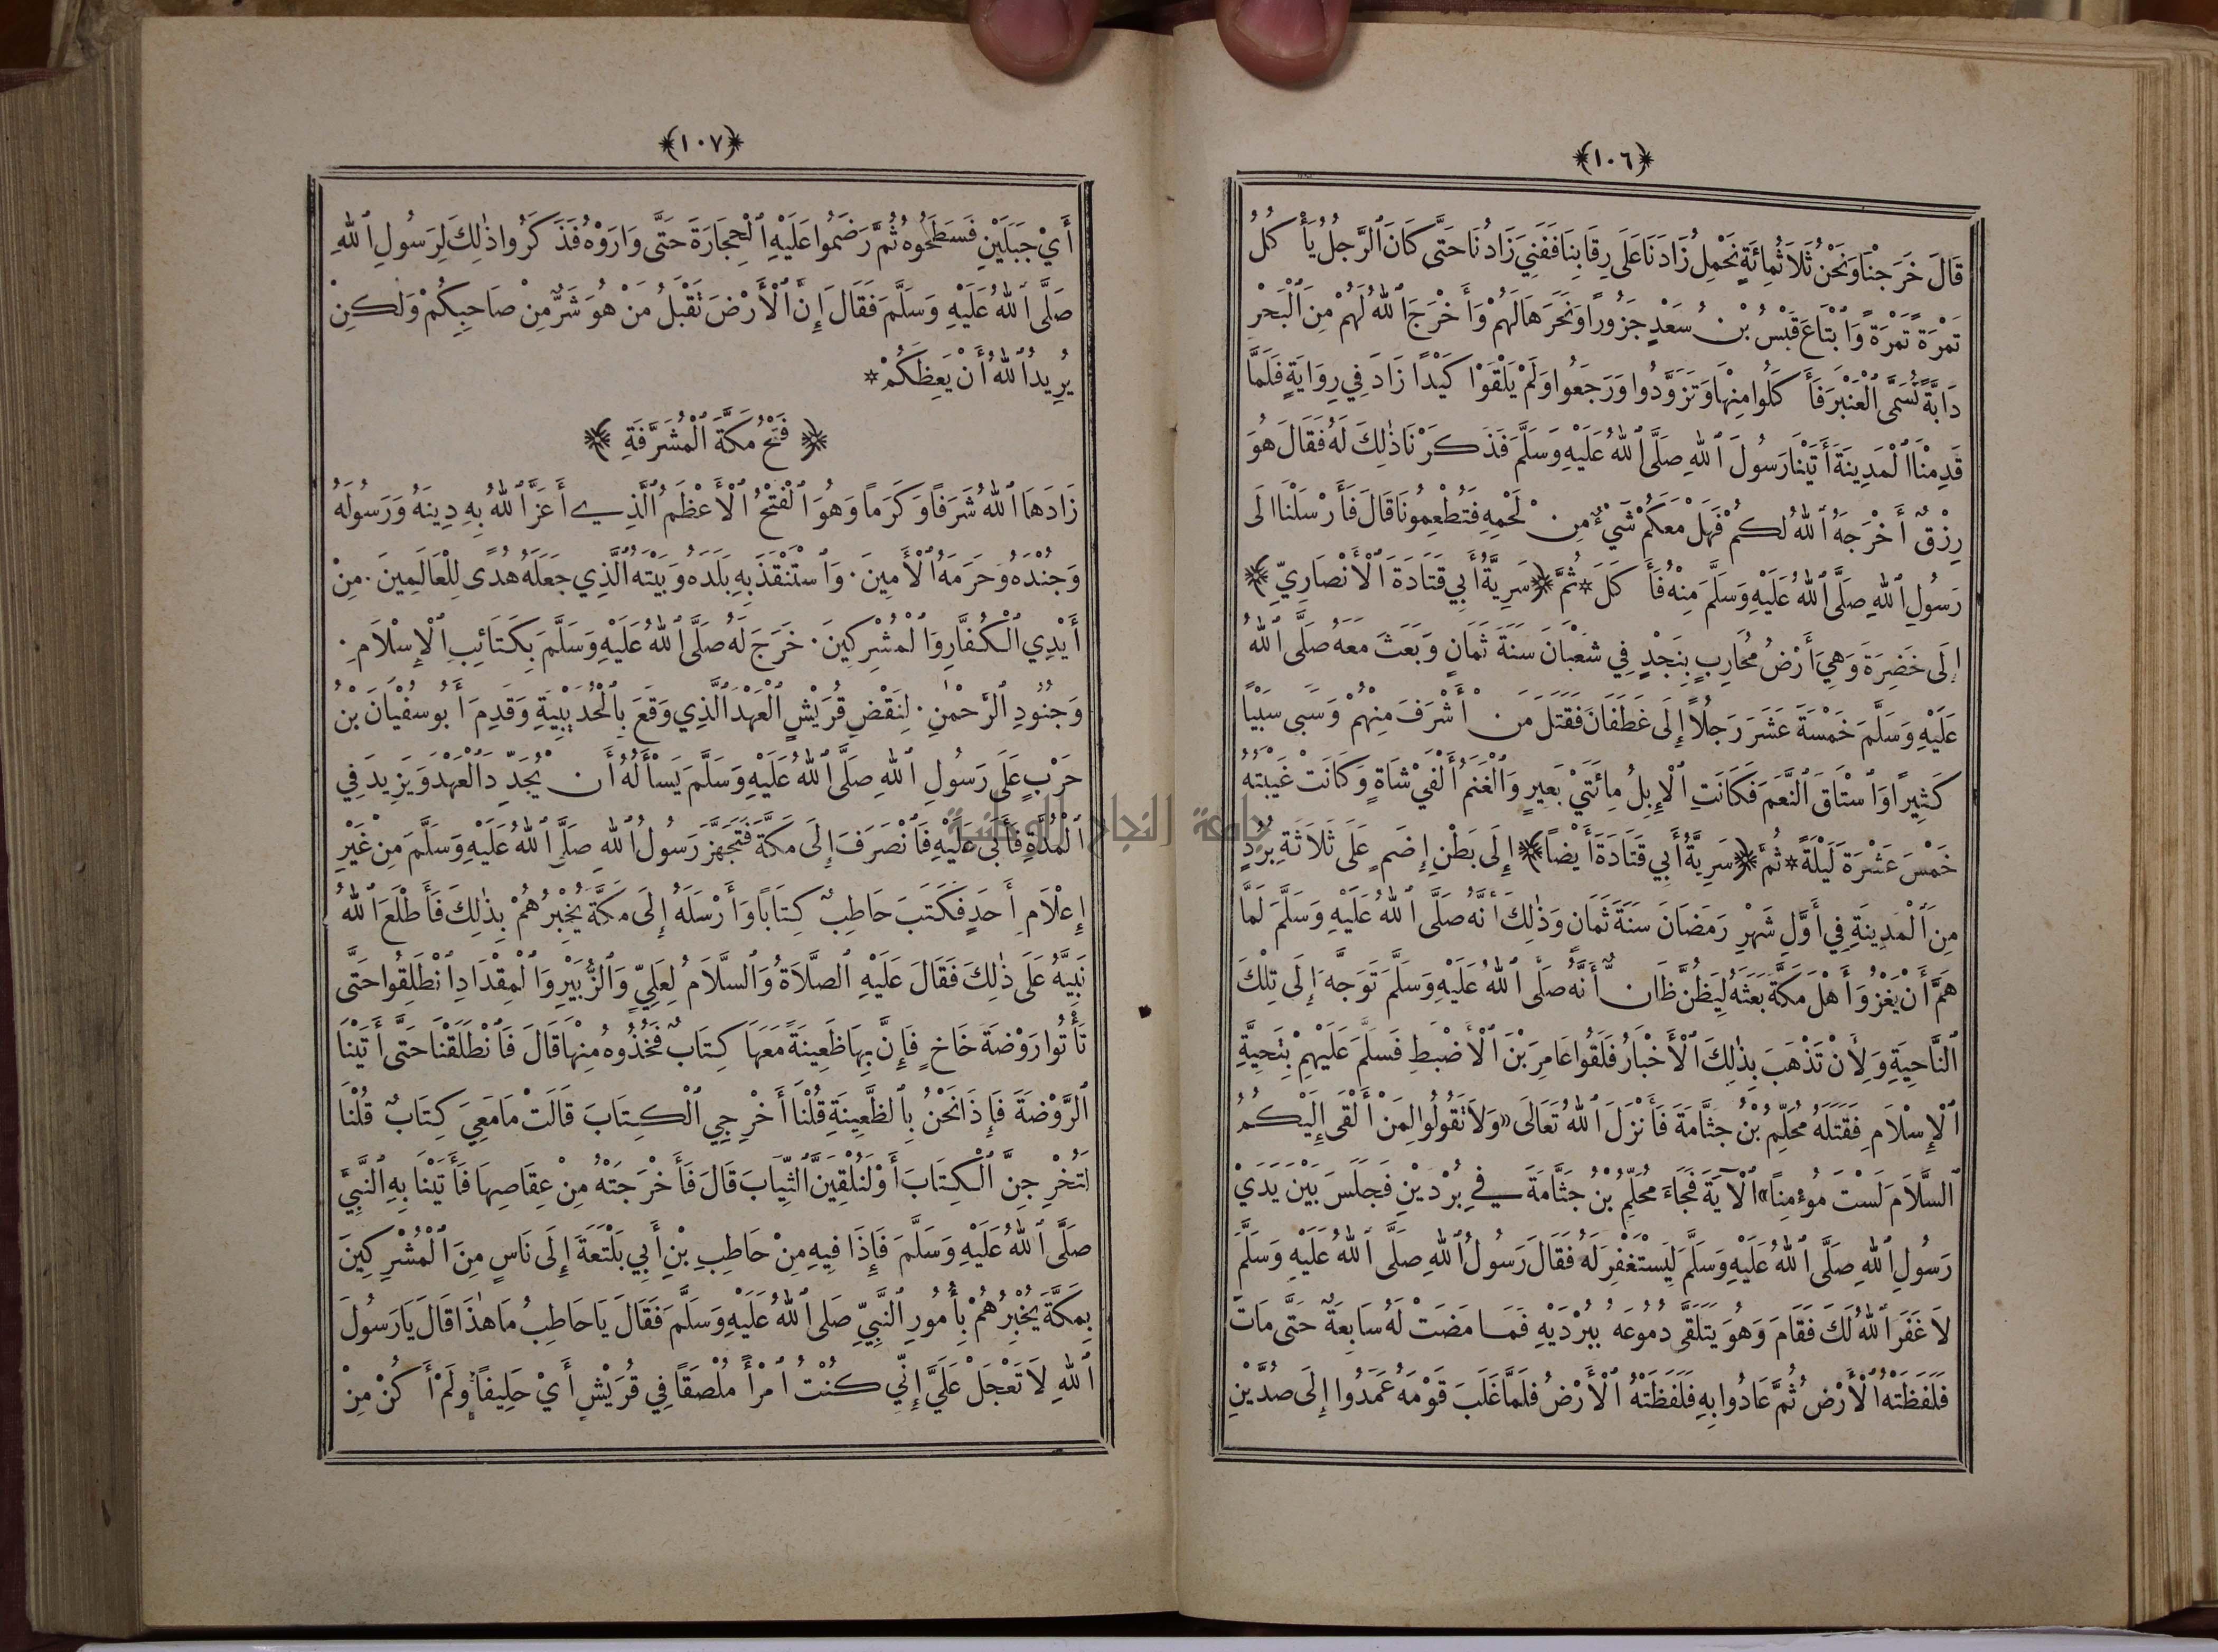 ﴿١٠٦﴾
قَالَ خَرَجْنَا وَنَحْنُ ثَلَاثُمِائَةٍ نَحْمِلُ زَادَنَا عَلَى رِقَابِنَا فَفَنِيَ زَادُنَا حَتَّى كَانَ ٱلرَّجُلُ يَأْكُلُ
تَمْرَةً تَمْرَةً وَٱبْتَاعَ قَيْسُ بْنُ سَعْدٍ جَزُورًا وَنَحَرَهَا لَهُمْ وَأَخْرَجَ ٱللّٰهُ لَهُمْ مِنَ ٱلْبَحْرِ
دَابَّةً تُسَمَّى ٱلْعَنْبَرَ فَأَكَلُوا مِنْهَا وَتَزَوَّدُوا وَرَجَعُوا وَلَمْ يَلْقَوْا كَيْدًا زَادَ فِي رِوَايَةٍ فَلَمَّا
قَدِمْنَا ٱلْمَدِينَةَ أَتَيْنَا رَسُولَ ٱللّٰهِ صَلَّى ٱللّٰهُ عَلَيْهِ وَسَلَّمَ فَذَكَرْنَا ذٰلِكَ لَهُ فَقَالَ هُوَ
رِزْقٌ أَخْرَجَهُ ٱللّٰهُ لَكُمْ فَهَلْ مَعَكُمْ شَيْءٌ مِنْ لَحْمِهِ فَتُطْعِمُونَا قَالَ فَأَرْسَلْنَا الَى
رَسُولِ ٱللّٰهِ صَلَّى ٱللّٰهُ عَلَيْهِ وَسَلَّمَ مِنْهُ فَأَكَلَ * ثُمَّ ﴿سَرِيَّةُ أَبِي قَتَادَةَ ٱلْأَنْصَارِيِّ﴾
إِلَى خَضِرَةَ وَهِيَ أَرْضُ مُحَارِبٍ بِنَجْدٍ فِي شَعْبَانَ سَنَةَ ثَمَانٍ وَبَعَثَ مَعَهُ صَلَّى ٱللّٰهُ
عَلَيْهِ وَسَلَّمَ خَمْسَةَ عَشَرَ رَجُلًا إِلَى غَطَفَانَ فَقَتَلَ مَنْ أَشْرَفَ مِنْهُمْ وَسَبَى سَبْيًا
كَثِيرًا وَٱسْتَاقَ ٱلنَّعَمَ فَكَانَتِ ٱلْإِبِلُ مِائَتَيْ بَعِيرٍ وَٱلْغَنَمُ أَلْفَيْ شَاةٍ وَكَانَتْ غَيْبَتُهُ
خَمْسَ عَشْرَةَ لَيْلَةً * ثُمَّ ﴿سَرِيَّةُ أَبِي قَتَادَةَ أَيْضًا﴾ إِلَى بَطْنِ إِضَمٍ عَلَى ثَلَاثَةِ بُرُدٍ
مِنَ ٱلْمَدِينَةِ فِي أَوَّلِ شَهْرِ رَمَضَانَ سَنَةَ ثَمَانٍ وَذٰلِكَ أَنَّهُ صَلَّى ٱللّٰهُ عَلَيْهِ وَسَلَّمَ لَمَّا
هَمَّ أَنْ يَغْزُوَ أَهْلَ مَكَّةَ بَعَثَهُ لِيَظُنَّ ظَانٌّ أَنَّهُ صَلَّى ٱللّٰهُ عَلَيْهِ وَسَلَّمَ تَوَجَّهَ إِلَى تِلْكَ
ٱلنَّاحِيَةِ وَلِأَنْ تَذْهَبَ بِذٰلِكَ ٱلْأَخْبَارُ فَلَقُوا عَامِرَ بْنَ ٱلْأَضْبَطِ فَسَلَّمَ عَلَيْهِمْ بِتَحِيَّةِ
ٱلْإِسْلَامِ فَقَتَلَهُ مُحَلِّمُ بْنُ جَثَّامَةَ فَأَنْزَلَ ٱللّٰهُ تَعَالَى «وَلَا تَقُولُوا لِمَنْ أَلْقَى إِلَيْكُمُ
ٱلسَّلَامَ لَسْتَ مُؤْمِنًا» ٱلْآيَةَ فَجَاءَ مُحَلِّمُ بْنُ جَثَّامَةَ فِي بُرْدَيْنِ فَجَلَسَ بَيْنَ يَدَيْ
رَسُولِ ٱللّٰهِ صَلَّى ٱللّٰهُ عَلَيْهِ وَسَلَّمَ لِيَسْتَغْفِرَ لَهُ فَقَالَ رَسُولُ ٱللّٰهِ صَلَّى ٱللّٰهُ عَلَيْهِ وَسَلَّمَ
لَا غَفَرَ ٱللّٰهُ لَكَ فَقَامَ وَهُوَ يَتَلَقَّى دُمُوعَهُ بِبُرْدَيْهِ فَمَا مَضَتْ لَهُ سَابِعَةٌ حَتَّى مَاتَ
فَلَفَظَتْهُ ٱلْأَرْضُ ثُمَّ عَادُوا بِهِ فَلَفَظَتْهُ ٱلْأَرْضُ فَلَمَّا غَلَبَ قَوْمَهُ عَمَدُوا إِلَى صُدَّيْنِ
﴿١٠٧﴾
أَيْ جَبَلَيْنِ فَسَطَحُوهُ ثُمَّ رَضَمُوا عَلَيْهِ ٱلْحِجَارَةَ حَتَّى وَارَوْهُ فَذَكَرُوا ذٰلِكَ لِرَسُولِ ٱللّٰهِ
صَلَّى ٱللّٰهُ عَلَيْهِ وَسَلَّمَ فَقَالَ إِنَّ ٱلْأَرْضَ تَقْبَلُ مَنْ هُوَ شَرٌّ مِنْ صَاحِبِكُمْ وَلٰكِنْ
يُرِيدُ ٱللّٰهُ أَنْ يَعِظَكُمْ *
﴿فَتْحُ مَكَّةَ ٱلْمُشَرَّفَةِ﴾
زَادَهَا ٱللّٰهُ شَرَفًا وَكَرَمًا وَهُوَ ٱلْفَتْحُ ٱلْأَعْظَمُ ٱلَّذِي أَعَزَّ ٱللّٰهُ بِهِ دِينَهُ وَرَسُولَهُ
وَجُنْدَهُ وَحَرَمَهُ ٱلْأَمِينَ ۰ وَٱسْتَنْقَذَ بِهِ بَلَدَهُ وَبَيْتَهُ ٱلَّذِي جَعَلَهُ هُدًى لِلْعَالَمِينَ ۰ مِنْ
أَيْدِي ٱلْكُفَّارِ وَٱلْمُشْرِكِينَ ۰ خَرَجَ لَهُ صَلَّى ٱللّٰهُ عَلَيْهِ وَسَلَّمَ بِكَتَائِبِ ٱلْإِسْلَامِ ۰
وَجُنُودِ ٱلرَّحْمٰنِ ۰ لِنَقْضِ قُرَيْشٍ ٱلْعَهْدَ ٱلَّذِي وَقَعَ بِٱلْحُدَيْبِيَةِ وَقَدِمَ أَبُو سُفْيَانَ بْنُ
حَرْبٍ عَلَى رَسُولِ ٱللّٰهِ صَلَّى ٱللّٰهُ عَلَيْهِ وَسَلَّمَ يَسْأَلُهُ أَنْ يُجَدِّدَ ٱلْعَهْدَ وَيَزِيدَ فِي
ٱلْمُدَّةِ فَأَبَى عَلَيْهِ فَٱنْصَرَفَ إِلَى مَكَّةَ فَتَجَهَّزَ رَسُولُ ٱللّٰهِ صَلَّى ٱللّٰهُ عَلَيْهِ وَسَلَّمَ مِنْ غَيْرِ
إِعْلَامِ أَحَدٍ فَكَتَبَ حَاطِبٌ كِتَابًا وَأَرْسَلَهُ إِلَى مَكَّةَ يُخْبِرُهُمْ بِذٰلِكَ فَأَطْلَعَ ٱللّٰهُ
نَبِيَّهُ عَلَى ذٰلِكَ فَقَالَ عَلَيْهِ ٱلصَّلَاةُ وَٱلسَّلَامُ لِعَلِيٍّ وَٱلزُّبَيْرِ وَٱلْمِقْدَادِ ٱنْطَلِقُوا حَتَّى
تَأْتُوا رَوْضَةَ خَاخٍ فَإِنَّ بِهَا ظَعِينَةً مَعَهَا كِتَابٌ فَخُذُوهُ مِنْهَا قَالَ فَٱنْطَلَقْنَا حَتَّى أَتَيْنَا
ٱلرَّوْضَةَ فَإِذَا نَحْنُ بِٱلظَّعِينَةِ قُلْنَا أَخْرِجِي ٱلْكِتَابَ قَالَتْ مَا مَعِيَ كِتَابٌ قُلْنَا
لَتُخْرِجِنَّ ٱلْكِتَابَ أَوْ لَنُلْقِيَنَّ ٱلثِّيَابَ قَالَ فَأَخْرَجَتْهُ مِنْ عِقَاصِهَا فَأَتَيْنَا بِهِ ٱلنَّبِيَّ
صَلَّى ٱللّٰهُ عَلَيْهِ وَسَلَّمَ فَإِذَا فِيهِ مِنْ حَاطِبِ بْنِ أَبِي بَلْتَعَةَ إِلَى نَاسٍ مِنَ ٱلْمُشْرِكِينَ
بِمَكَّةَ يُخْبِرُهُمْ بِأُمُورِ ٱلنَّبِيِّ صَلَى ٱللّٰهُ عَلَيْهِ وَسَلَّمَ فَقَالَ يَا حَاطِبُ مَا هٰذَا قَالَ يَا رَسُولَ
ٱللّٰهِ لَا تَعْجَلْ عَلَيَّ إِنِّي كُنْتُ ٱمْرَأً مُلْصَقًا فِي قُرَيْشٍ أَيْ حَلِيفًا وَلَمْ أَكُنْ مِنْ
جامعة النجاح الوطنية